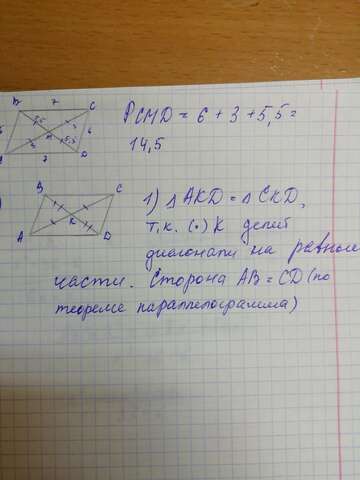 B 7 C
5,5 3
6 M 6
3 5,5
7 D
PCMD = 6 + 3 + 5,5 =
14,5
B C
K
A D
1) △ AKD = △ CKD,
т.к. (•) K делит
диагонали на равные
части. Сторона AB = CD (по
теореме параллелограмма)